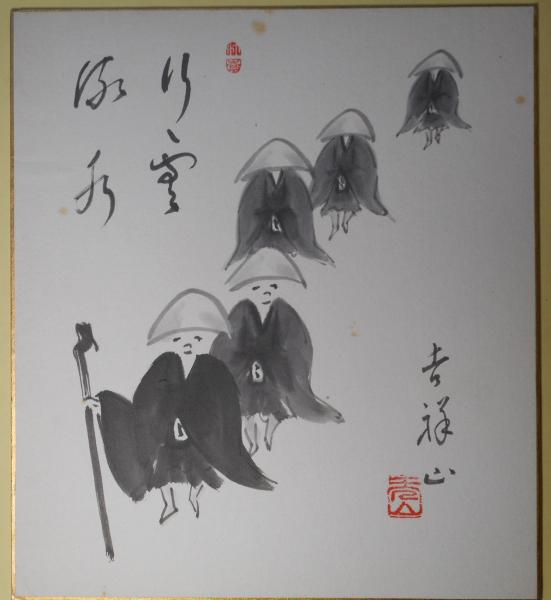 行雲
流水
吉祥山